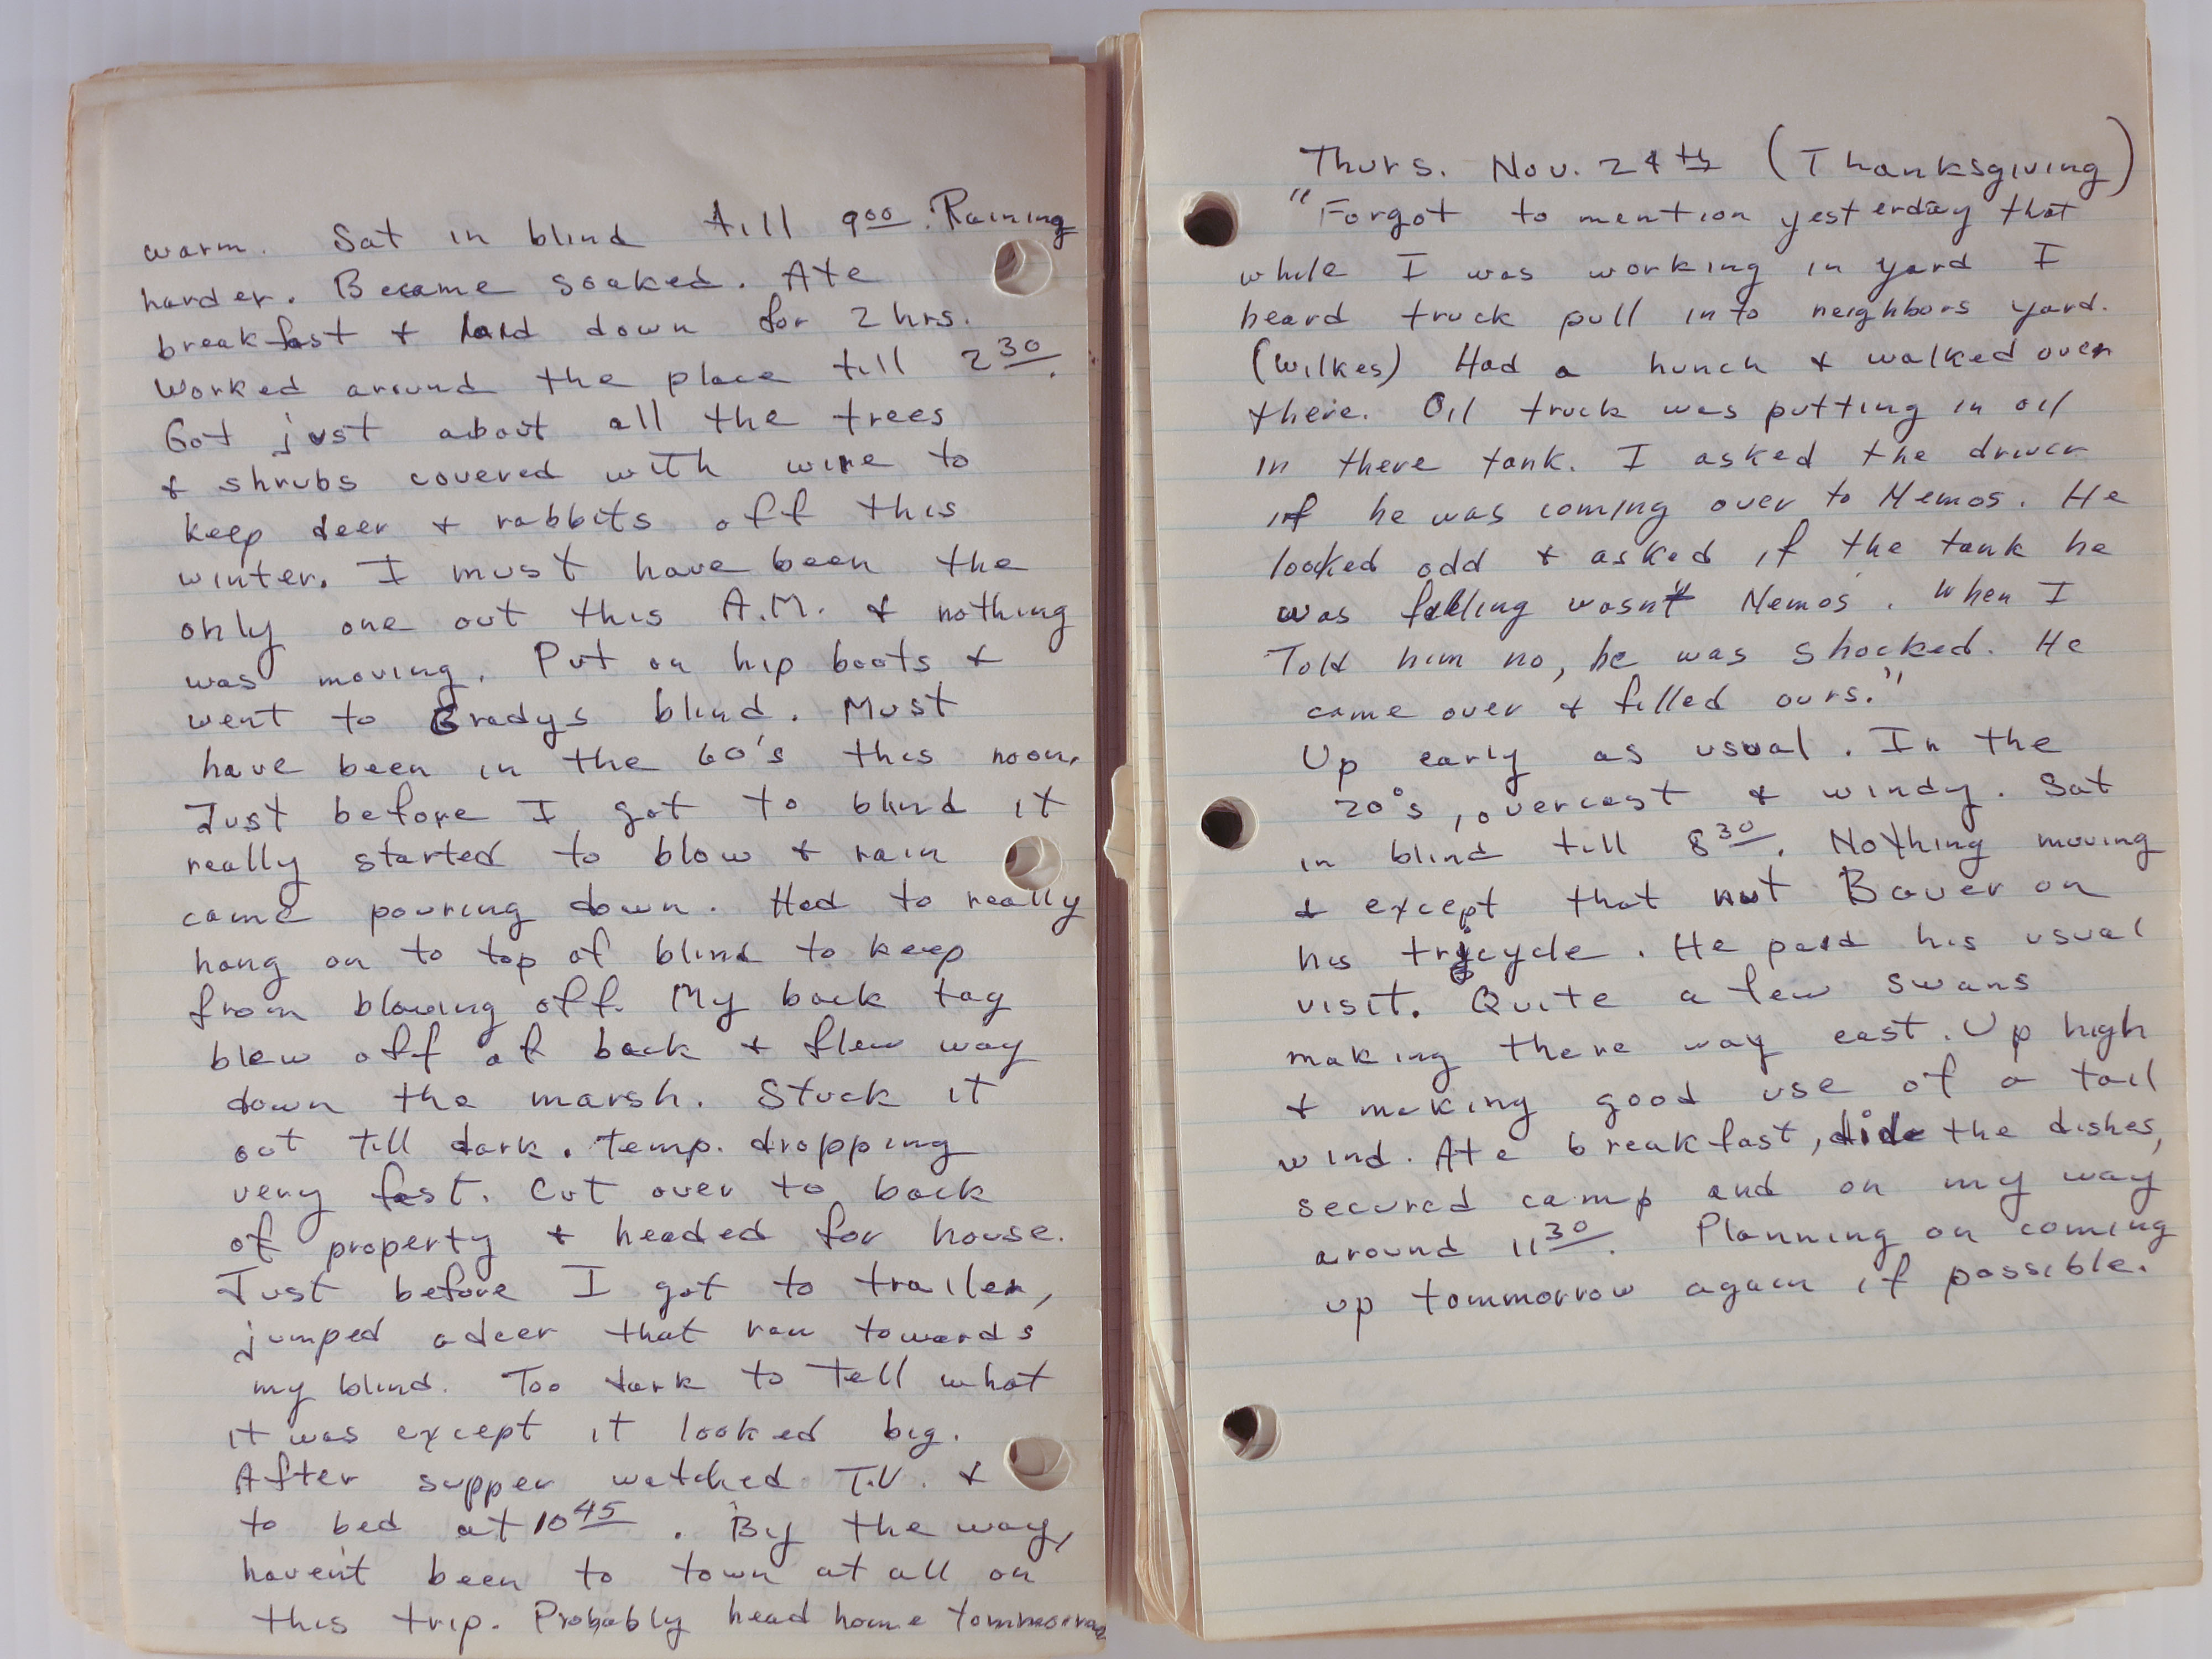 warm. Sat in blind till 9⁰⁰. Raining
harder. Became soaked. Ate
breakfast + laid down for 2 hrs.
Worked around the place till 2³⁰.
Got just about all the trees
+ shrubs covered with wire to
keep deer + rabbits off this
winter. I must have been the
only one out this A.M. + nothing
was moving. Put on hip boots +
went to Bradys blind. Must
have been in the 60's this noon.
Just before I got to blind it
really started to blow + rain
came pouring down. Had to really
hang on to top of blind to keep
from blowing off. My back tag
blew off of back + flew way
down the marsh. Stuck it
out till dark. Temp. dropping
very fast. Cut over to back
of property + headed for house.
Just before I got to trailer,
jumped a deer that ran towards
my blind. Too dark to tell what
it was except it looked big.
After supper watched T.V. +
to bed at 10⁴⁵. By the way,
haven't been to town at all on
this trip. Probably head home tommorrow
Thurs. Nov. 24th (Thanksgiving)
"Forgot to mention yesterday that
while I was working in yard I
heard truck pull into neighbors yard.
(Wilkes) Had a hunch + walked over
there. Oil truck was putting in oil
in there tank. I asked the driver
if he was coming over to Nemos. He
looked odd + asked if the tank he
was filling wasn't Nemos. When I
Told him no, he was shocked. He
came over + filled ours."
Up early as usual. In the
20's, overcast + windy. Sat
in blind till 8³⁰. Nothing moving
+ except that nut Bauer on
his tricycle. He paid his usual
visit. Quite a few swans
making there way east. Up high
+ making good use of a tail
wind. Ate breakfast, did the dishes,
secured camp and on my way
around 11³⁰. Planning on coming
up tommorrow again if possible.